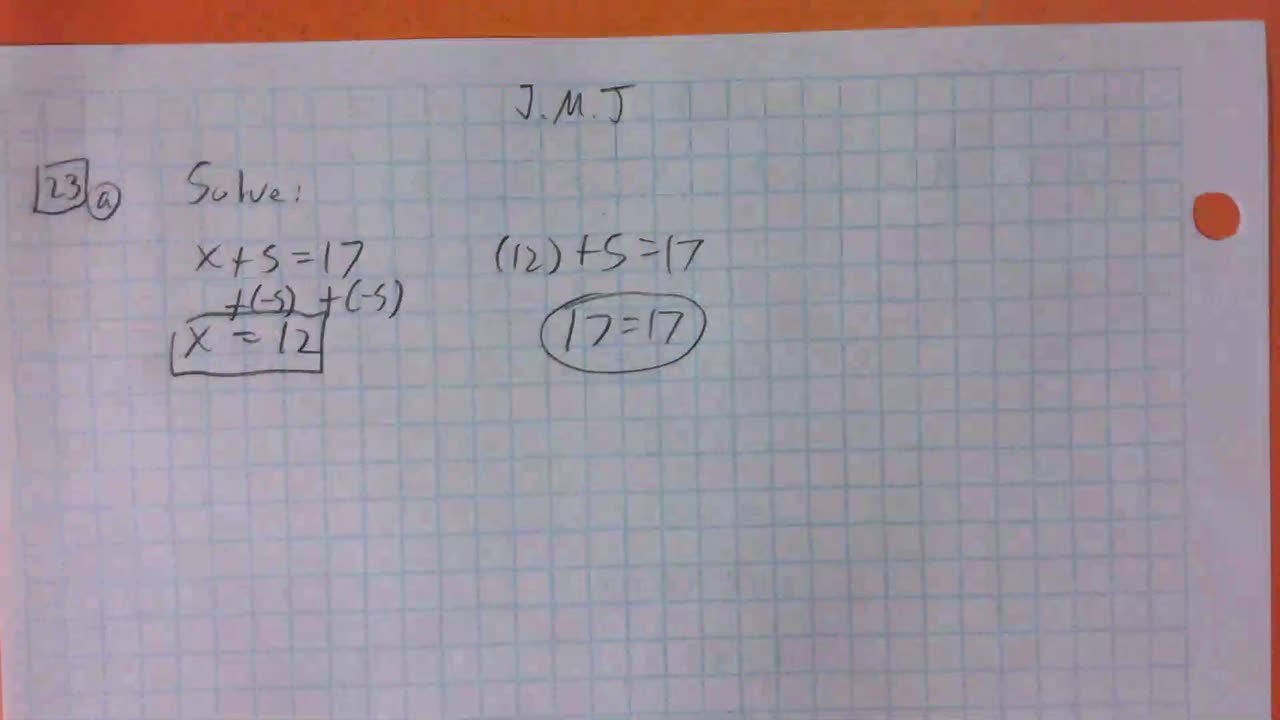 J.M.J
23 a Solve:
x+5=17 (12)+5=17
+(-5) +(-5)
x = 12 17=17